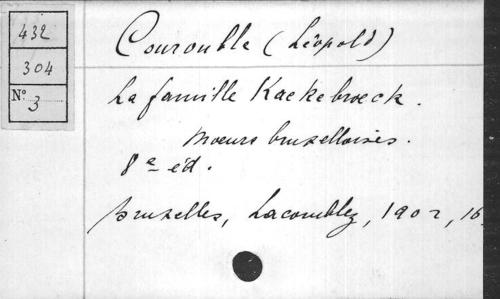 432
304
N° 3
Courouble (Léopold)
La famille Kaekebroeck.
Moeurs bruxelloises.
8e éd.
Bruxelles, Lacomblez, 1902, 16